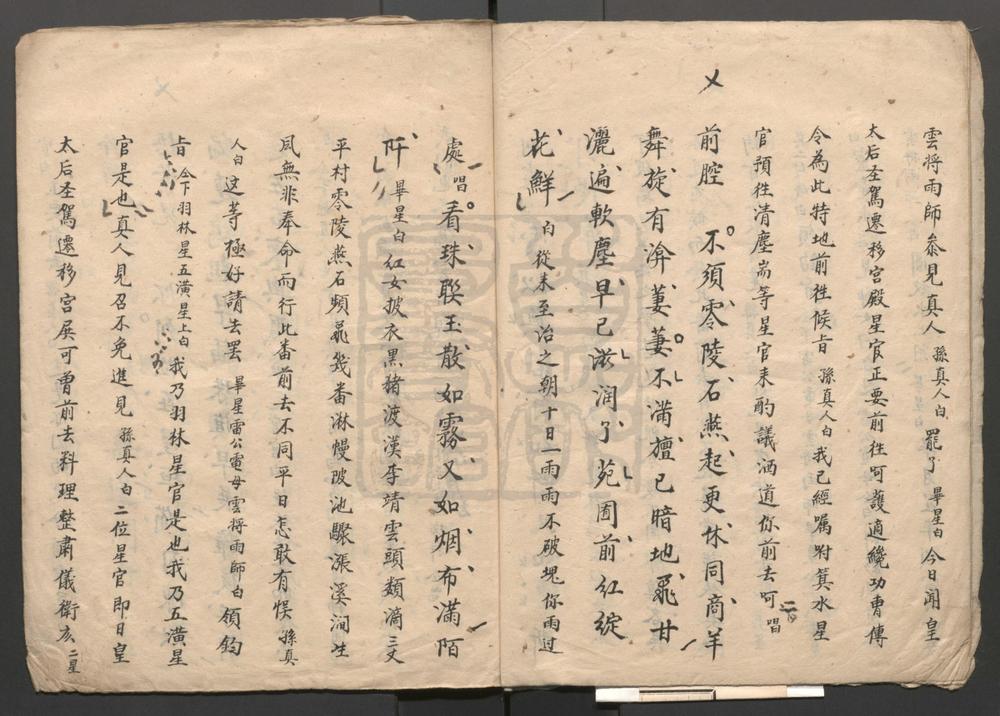 雲将雨師叅見真人 孫真人白 罷了 畢星白 今日聞皇
太后圣駕遷移宮殿星官正要前往呵護適纔功曹傳
令為此特地前徃候旨 孫真人白 我已經嘱咐箕水星
官預徃清塵耑等星官来酌議洒道你前去呵 唱
前腔 不須零陵石燕起更休同商羊
舞旋有渰萋萋不滿檀已暗地飛甘
灑遍軟塵早已滋润了苑囿前红綻
花鮮 白 從来至治之朝十日一雨雨不破塊你雨过
處 唱 看珠聨玉散如霧又如烟布滿陌
阡 畢星白 红女披衣黒猪渡漢李靖雲頭類滴三丈
平村零陵燕石頻飛幾番淋幔陂池驟漲溪涧生
風無非奉命而行此番前去不同平日怎敢有悮 孫真
人白 这等極好請去罢 畢星雷公電母雲将雨師白 領鈞
旨 仝下羽林星五潢星上白 我乃羽林星官是也我乃五潢星
官是也真人見召不免進見 孫真人白 二位星官即日皇
太后圣駕遷移宮扆可曾前去料理整肅儀衛亥 二星